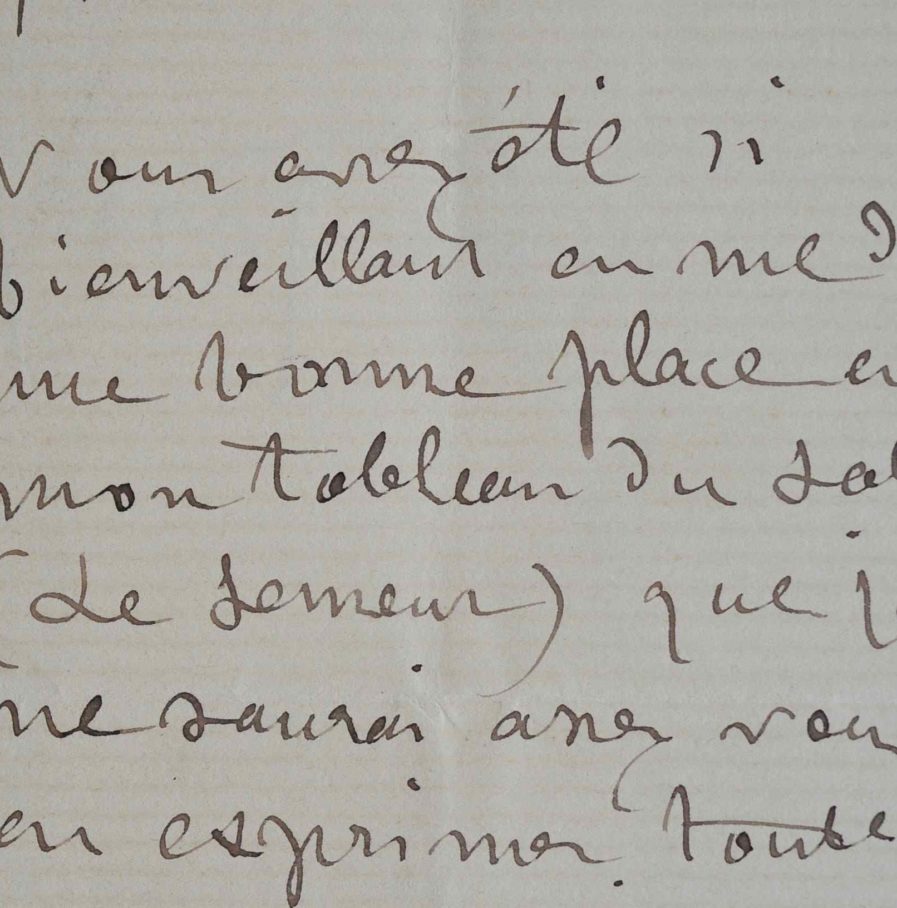 Vous avez été si
bienveillant en me d
une bonne place en
mon tableau du sal
(Le Semeur) que j
ne saurai assez vou
en exprimer toute